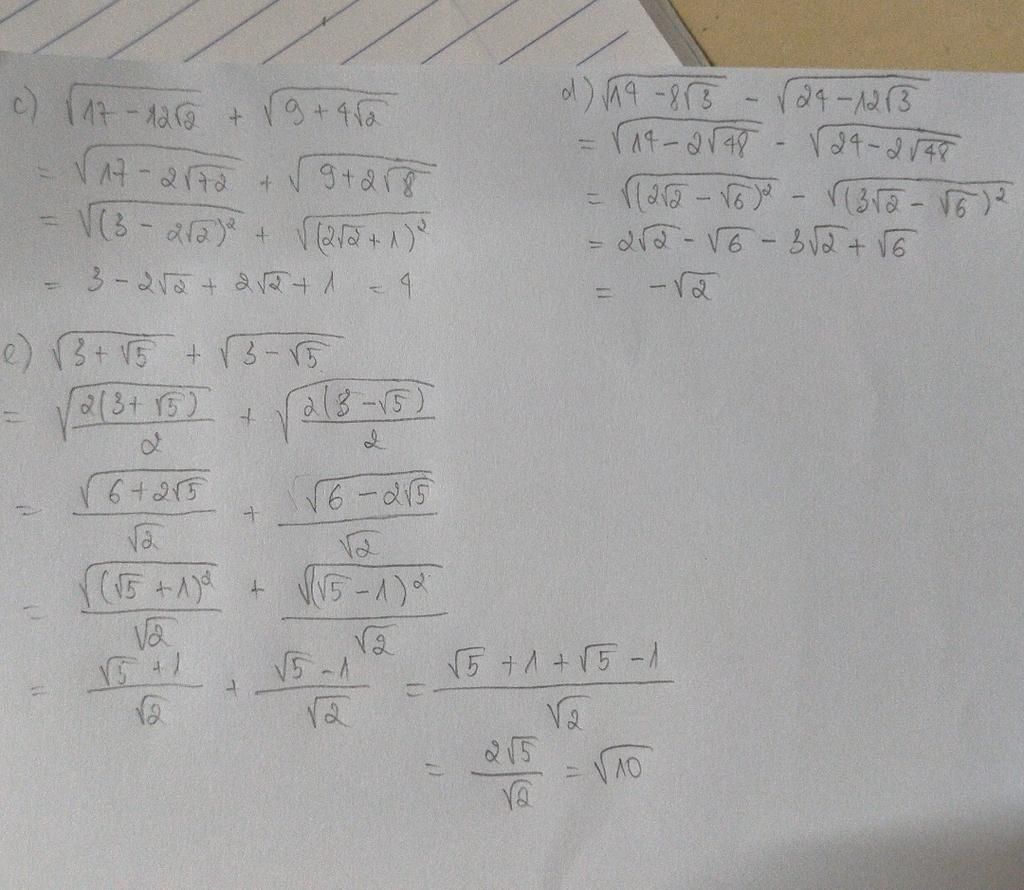 c) √(17 - 12√2) + √(9 + 4√2)
= √(17 - 2√72) + √(9 + 2√8)
= √((3 - 2√2)²) + √((2√2 + 1)²)
= 3 - 2√2 + 2√2 + 1 = 4
d) √(14 - 8√3) - √(24 - 12√3)
= √(14 - 2√48) - √(24 - 2√48)
= √((2√2 - √6)²) - √((3√2 - √6)²)
= 2√2 - √6 - 3√2 + √6
= -√2
e) √(3 + √5) + √(3 - √5)
= √(2(3 + √5)/2) + √(2(3 - √5)/2)
= √(6 + 2√5)/√2 + √(6 - 2√5)/√2
= √((√5 + 1)²)/√2 + √((√5 - 1)²)/√2
= (√5 + 1)/√2 + (√5 - 1)/√2 = (√5 + 1 + √5 - 1)/√2
= 2√5/√2 = √10